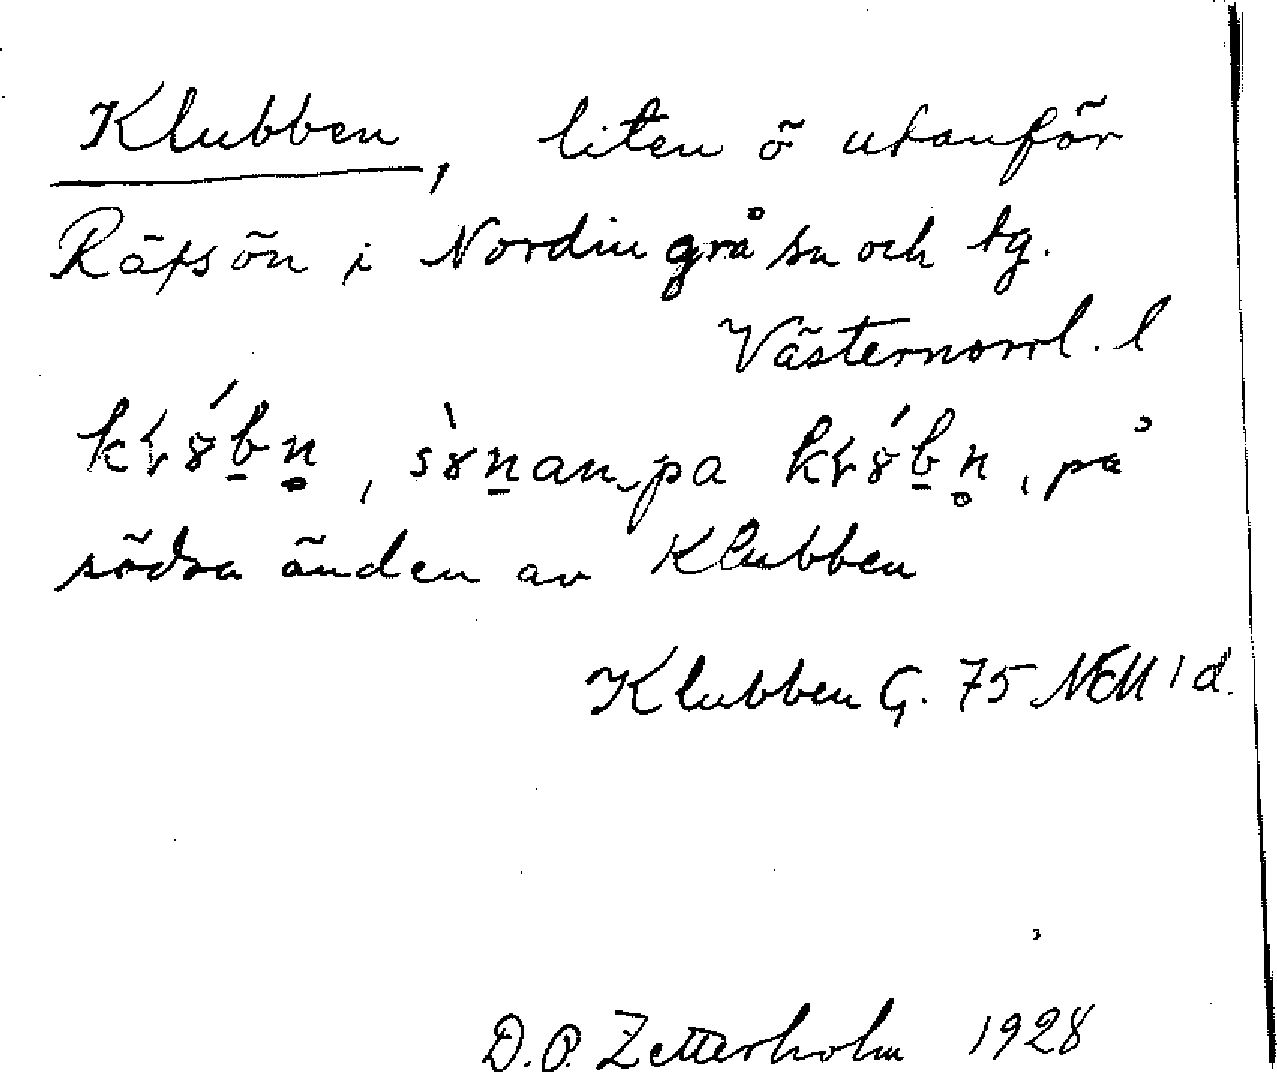 Klubben, liten ö utanför
Räfsön i Nordingrå sn och tg.
Västernorrl. l
på
södra änden av Klubben
Klubben G. 75 1 d.
D.O. Zetterholm 1928